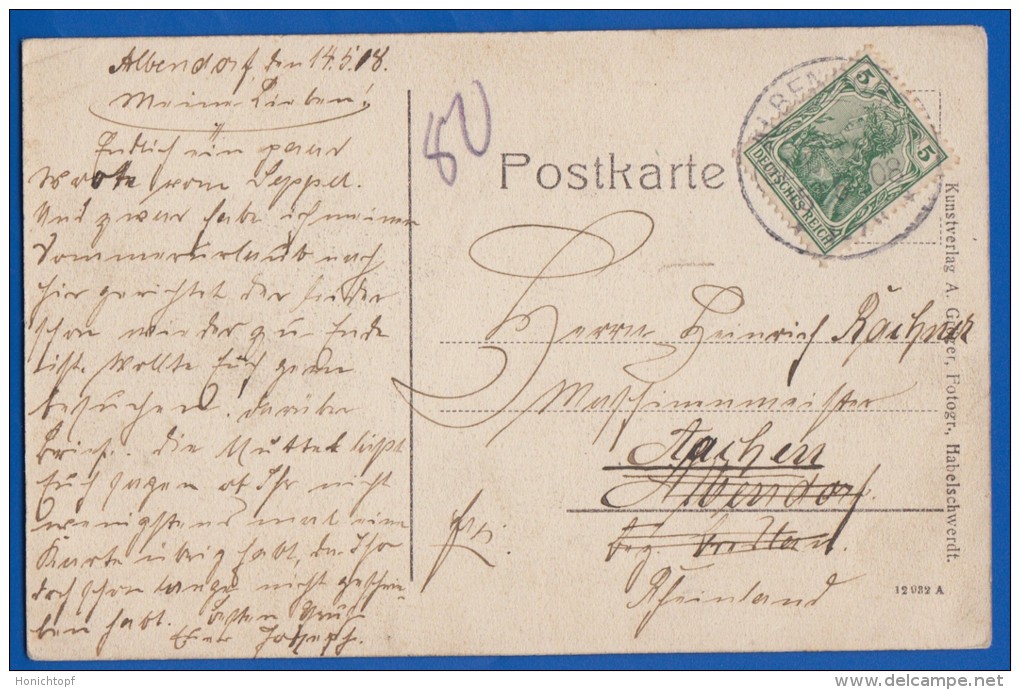 Albendorf den 14.5.08.
Meine Lieben!
Endlich ein paar
Worte vom Seppel.
Und zwar habe ich meinen
Sommerurlaub nach
hier gerichtet der leider
schon wieder zu Ende
ist. Wollte Euch gern
besuchen. darüber
Brief. Die Mutter läßt
Euch sagen ob Ihr nicht
wenigstens mal eine
Karte übrig habt, da Ihr
doch schon lange nicht geschrie-
ben habt. Besten Gruß
Euer Joseph.
80
Postkarte
5
5
DEUTSCHES REICH
08
Herrn Heinrich Rachner
Maschinenmeister
Aachen
Albendorf
Bez. Breslau.
Rheinland
Frei.
Kunstverlag A. Fotogr., Habelschwerdt.
12932 A
Honichtopf
www.delcampe.net